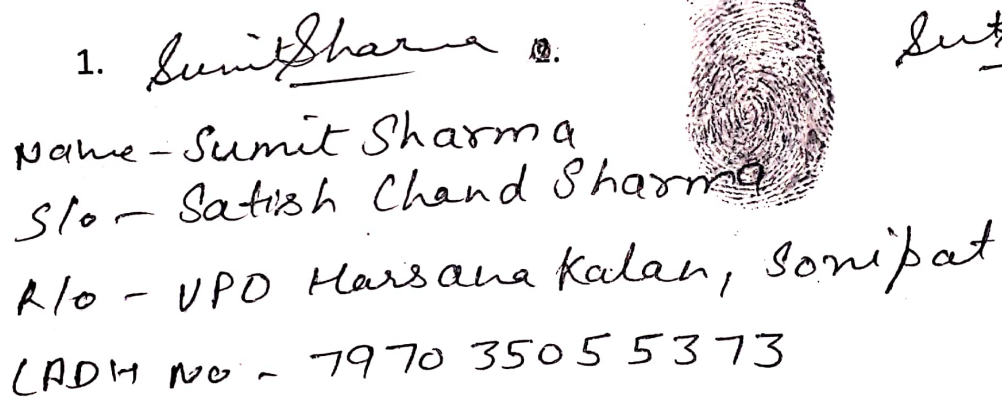 1. Sumit Sharma
Name - Sumit Sharma
S/o - Satish Chand Sharma
R/o - VPO Harsana Kalan, Sonipat
(ADH NO - 7970 3505 5373